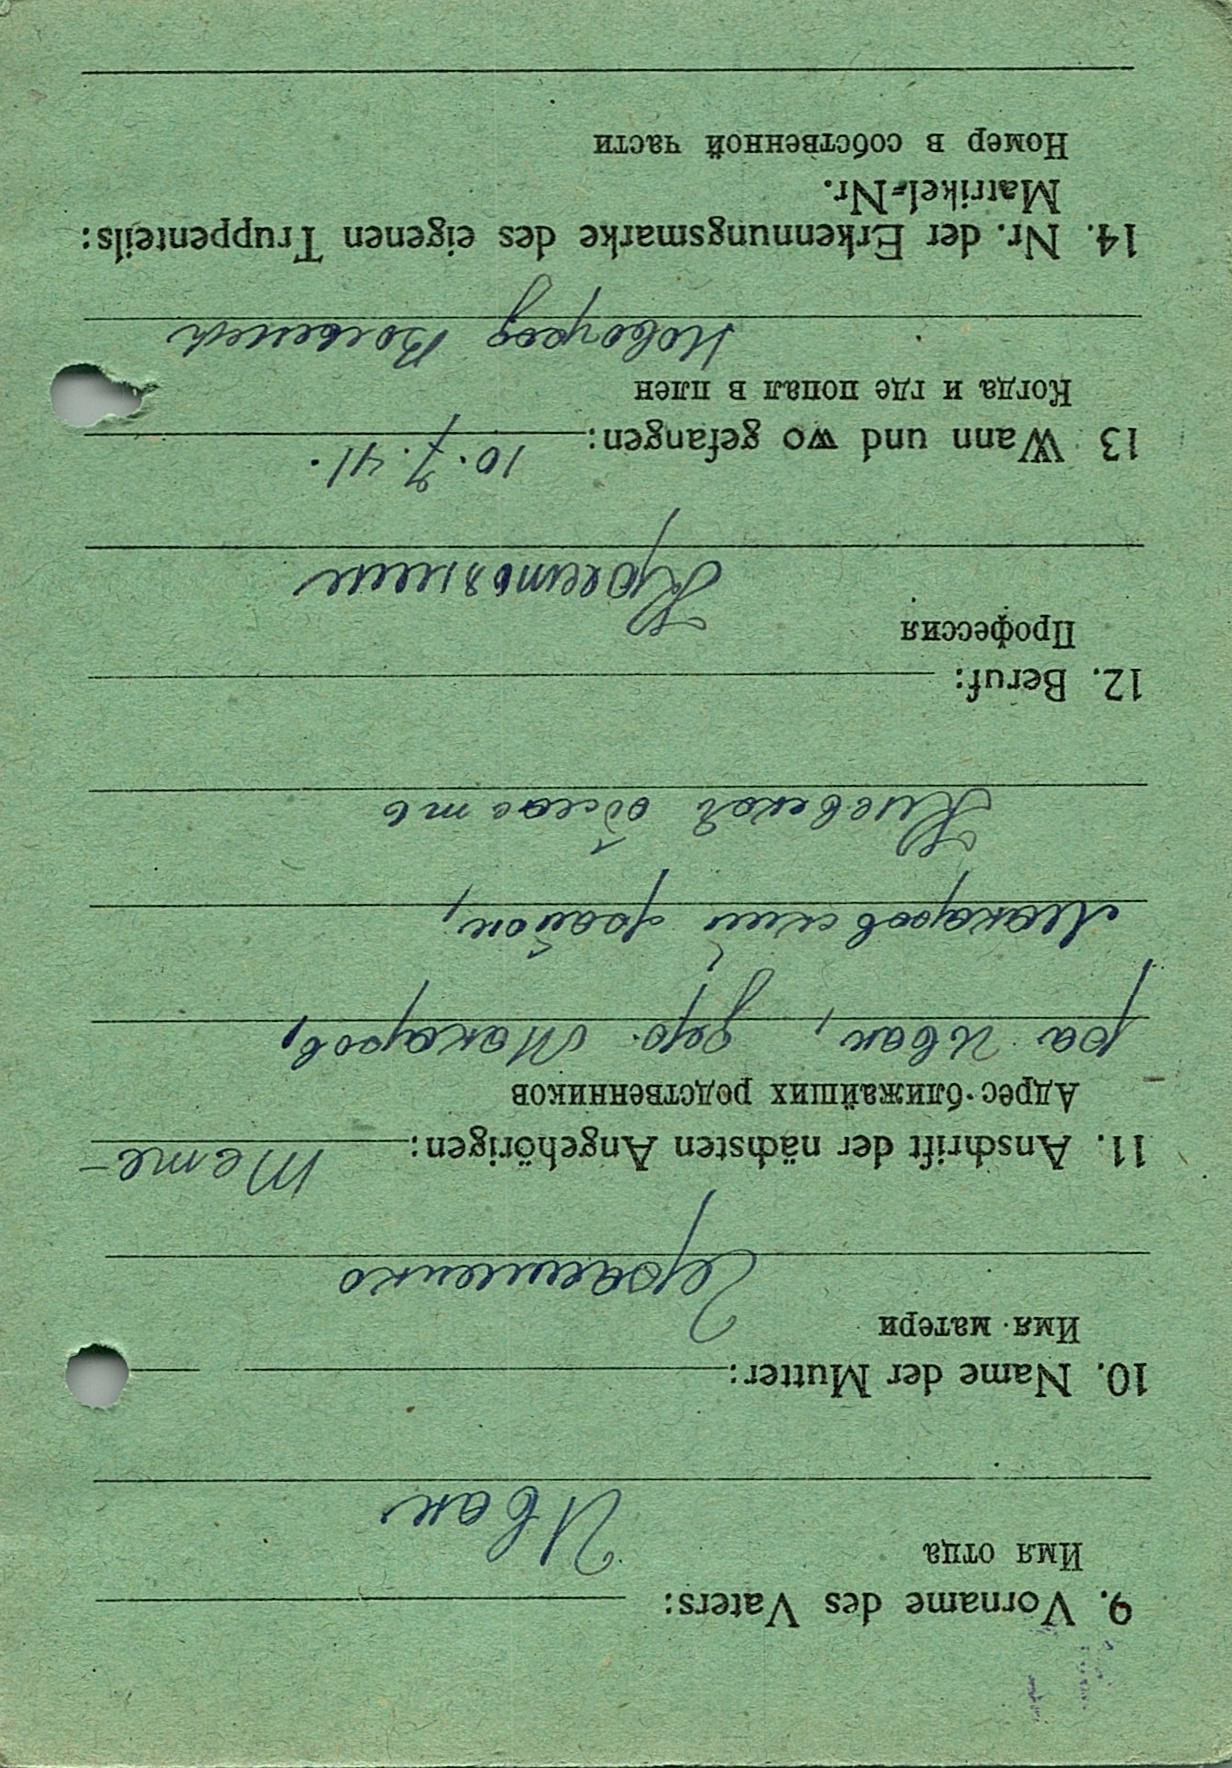 9. Vorname des Vaters:
Имя отца
Иван
10. Name der Mutter:
Имя матери
Герасименко
11. Anschrift der nächsten Angehörigen: Тете-
Адрес ближайших родственников
ра Иван, дер. Макаров,
Макаровский район,
Киевской область
12. Beruf:
Профессия
Крестьянин
13 Wann und wo gefangen: 10.7.41.
Когда и где попал в плен
Новоград Волынск
14. Nr. der Erkennungsmarke des eigenen Truppenteils:
Matrikel-Nr.
Номер в собственной части